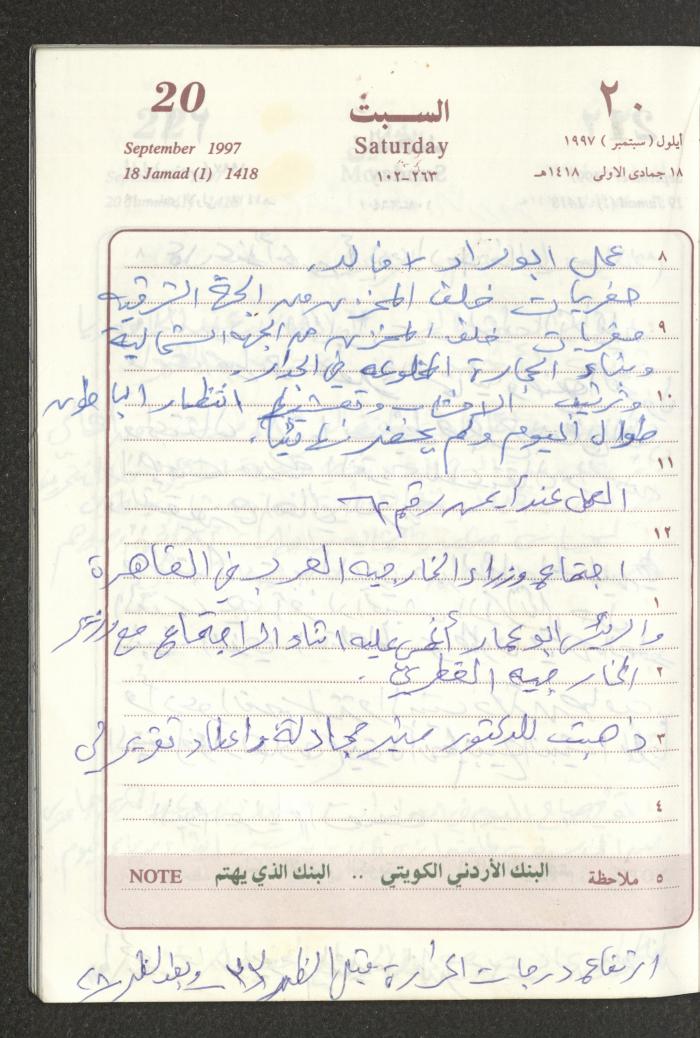 20
السبت
٢٠
September 1997
Saturday
أيلول ( سبتمبر ) ١٩٩٧
18 Jamad (1) 1418
٢٦٣-١٠٢
١٨ جمادى الاولى ١٤١٨هـ
٨ عمل ابو لاد
حفريات خلف المخزن من الجهة الشرقيه
٩ حفريات خلف المخزن من الجهة الشمالية
وبناء الحجارة في الجدار.
١٠ وترتيب الاخشاب انتظار الباطون
طوال اليوم ولم يحضر نهائيا.
١١
العمل عند أيمن رقم
١٢
اجتماع وزراء الخارجيه العرب في القاهرة
١
والرئيس ابو عمار أغمي عليه اثناء الاجتماع مع وزير
٢ الخارجيه القطري.
٣ ذهبت للدكتور منير مجادلة واعطاه تقرير لي
٤
٥ ملاحظة البنك الأردني الكويتي .. البنك الذي يهتم NOTE
ارتفاع درجات الحرارة قبل الظهر ٣٣ وبعد الظهر ٢٨